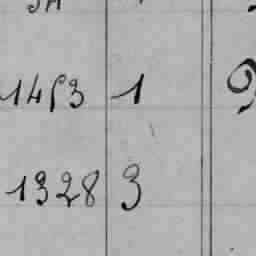 1453 1
1328 3